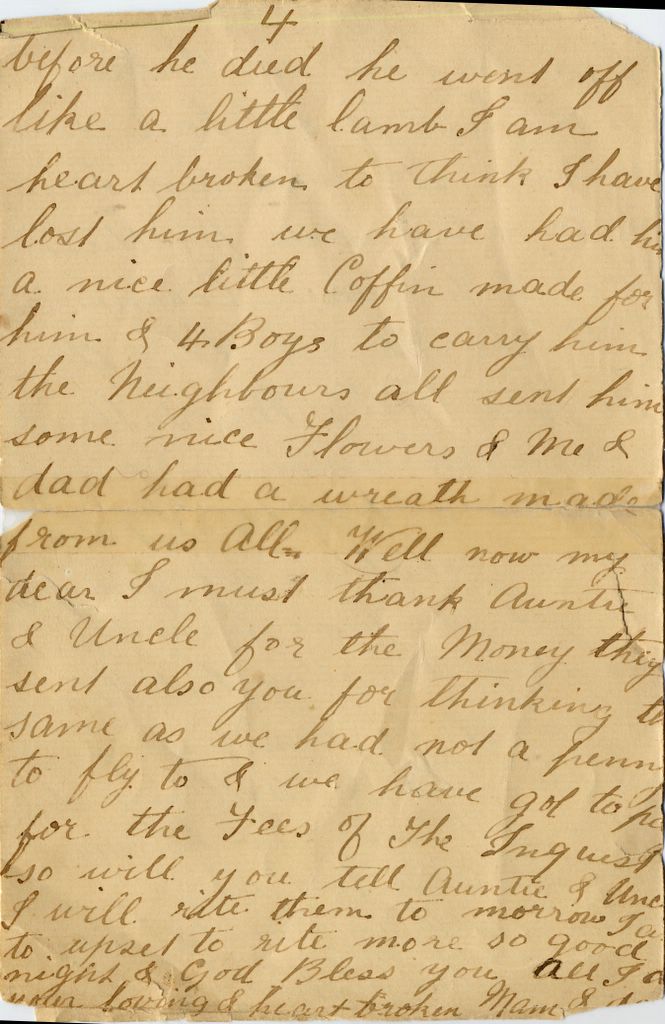 4
before he died he went off
like a little lamb I am
heart broken to think I have
lost him we have had
a nice little Coffin made for
him & 4 Boys to carry him
the Neighbours all sent him
some nice Flowers & Me &
dad had a wreath made
from us All Well now my
dear I must thank Auntie
& Uncle for the Money they
sent also you for thinking to
same as we had not a penn
to fly to & we have got to
for the Fees of The Inquest
so will you tell Auntie & Unc
I will rite them to morrow I a
to upset to rite more so good
night & God Bless you All I a
your loving & heart broken Mam &